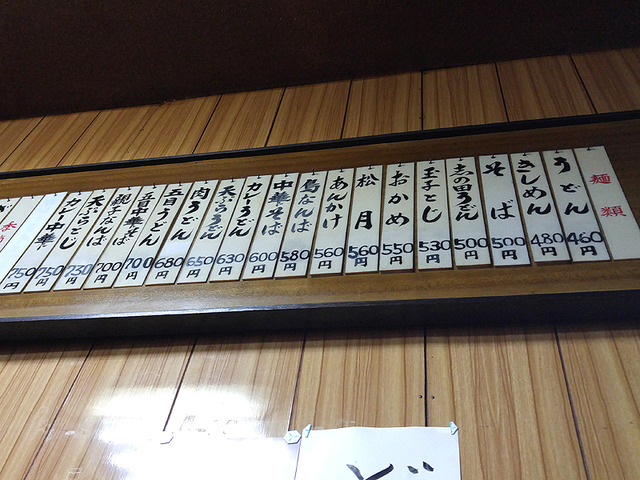 麺類
うどん 460円
きしめん 480円
そば 500円
志の田うどん 500円
玉子とじ 530円
おかめ 550円
松月 560円
あんかけ 560円
鳥なんば 580円
中華そば 600円
カレーうどん 630円
天ぷらうどん 650円
肉うどん 680円
五目うどん 700円
五目中華そば 700円
親子なんば
天ぷらとじ 730円
カレー中華 750円
750円
ど